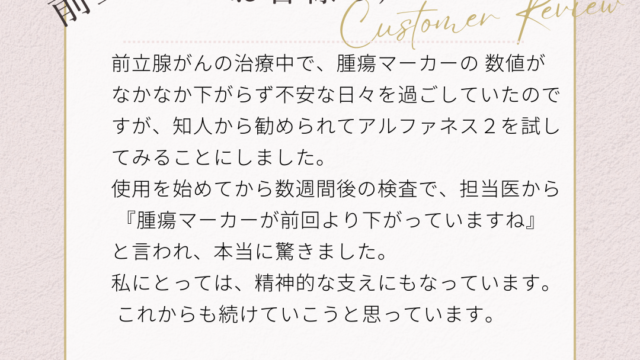 Customer Review
前立腺がんの治療中で、腫瘍マーカーの 数値が
なかなか下がらず不安な日々を過ごしていたので
すが、知人から勧められてアルファネス２を試し
てみることにしました。
使用を始めてから数週間後の検査で、担当医から
『腫瘍マーカーが前回より下がっていますね』
と言われ、本当に驚きました。
私にとっては、精神的な支えにもなっています。
これからも続けていこうと思っています。